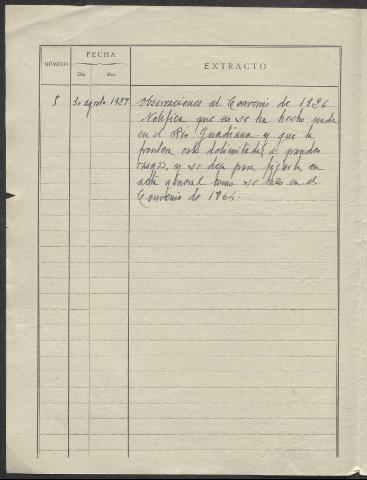 NÚMERO FECHA EXTRACTO
Día Mes
5 30 agosto 1927 Observaciones al Convenio de 1926
Notifica que no se ha hecho nada
en el Río Guadiana y que la
frontera está delimitada a grandes
rasgos, y se deja para fijarla en
acta general como se hizo en el
Convenio de 1864.